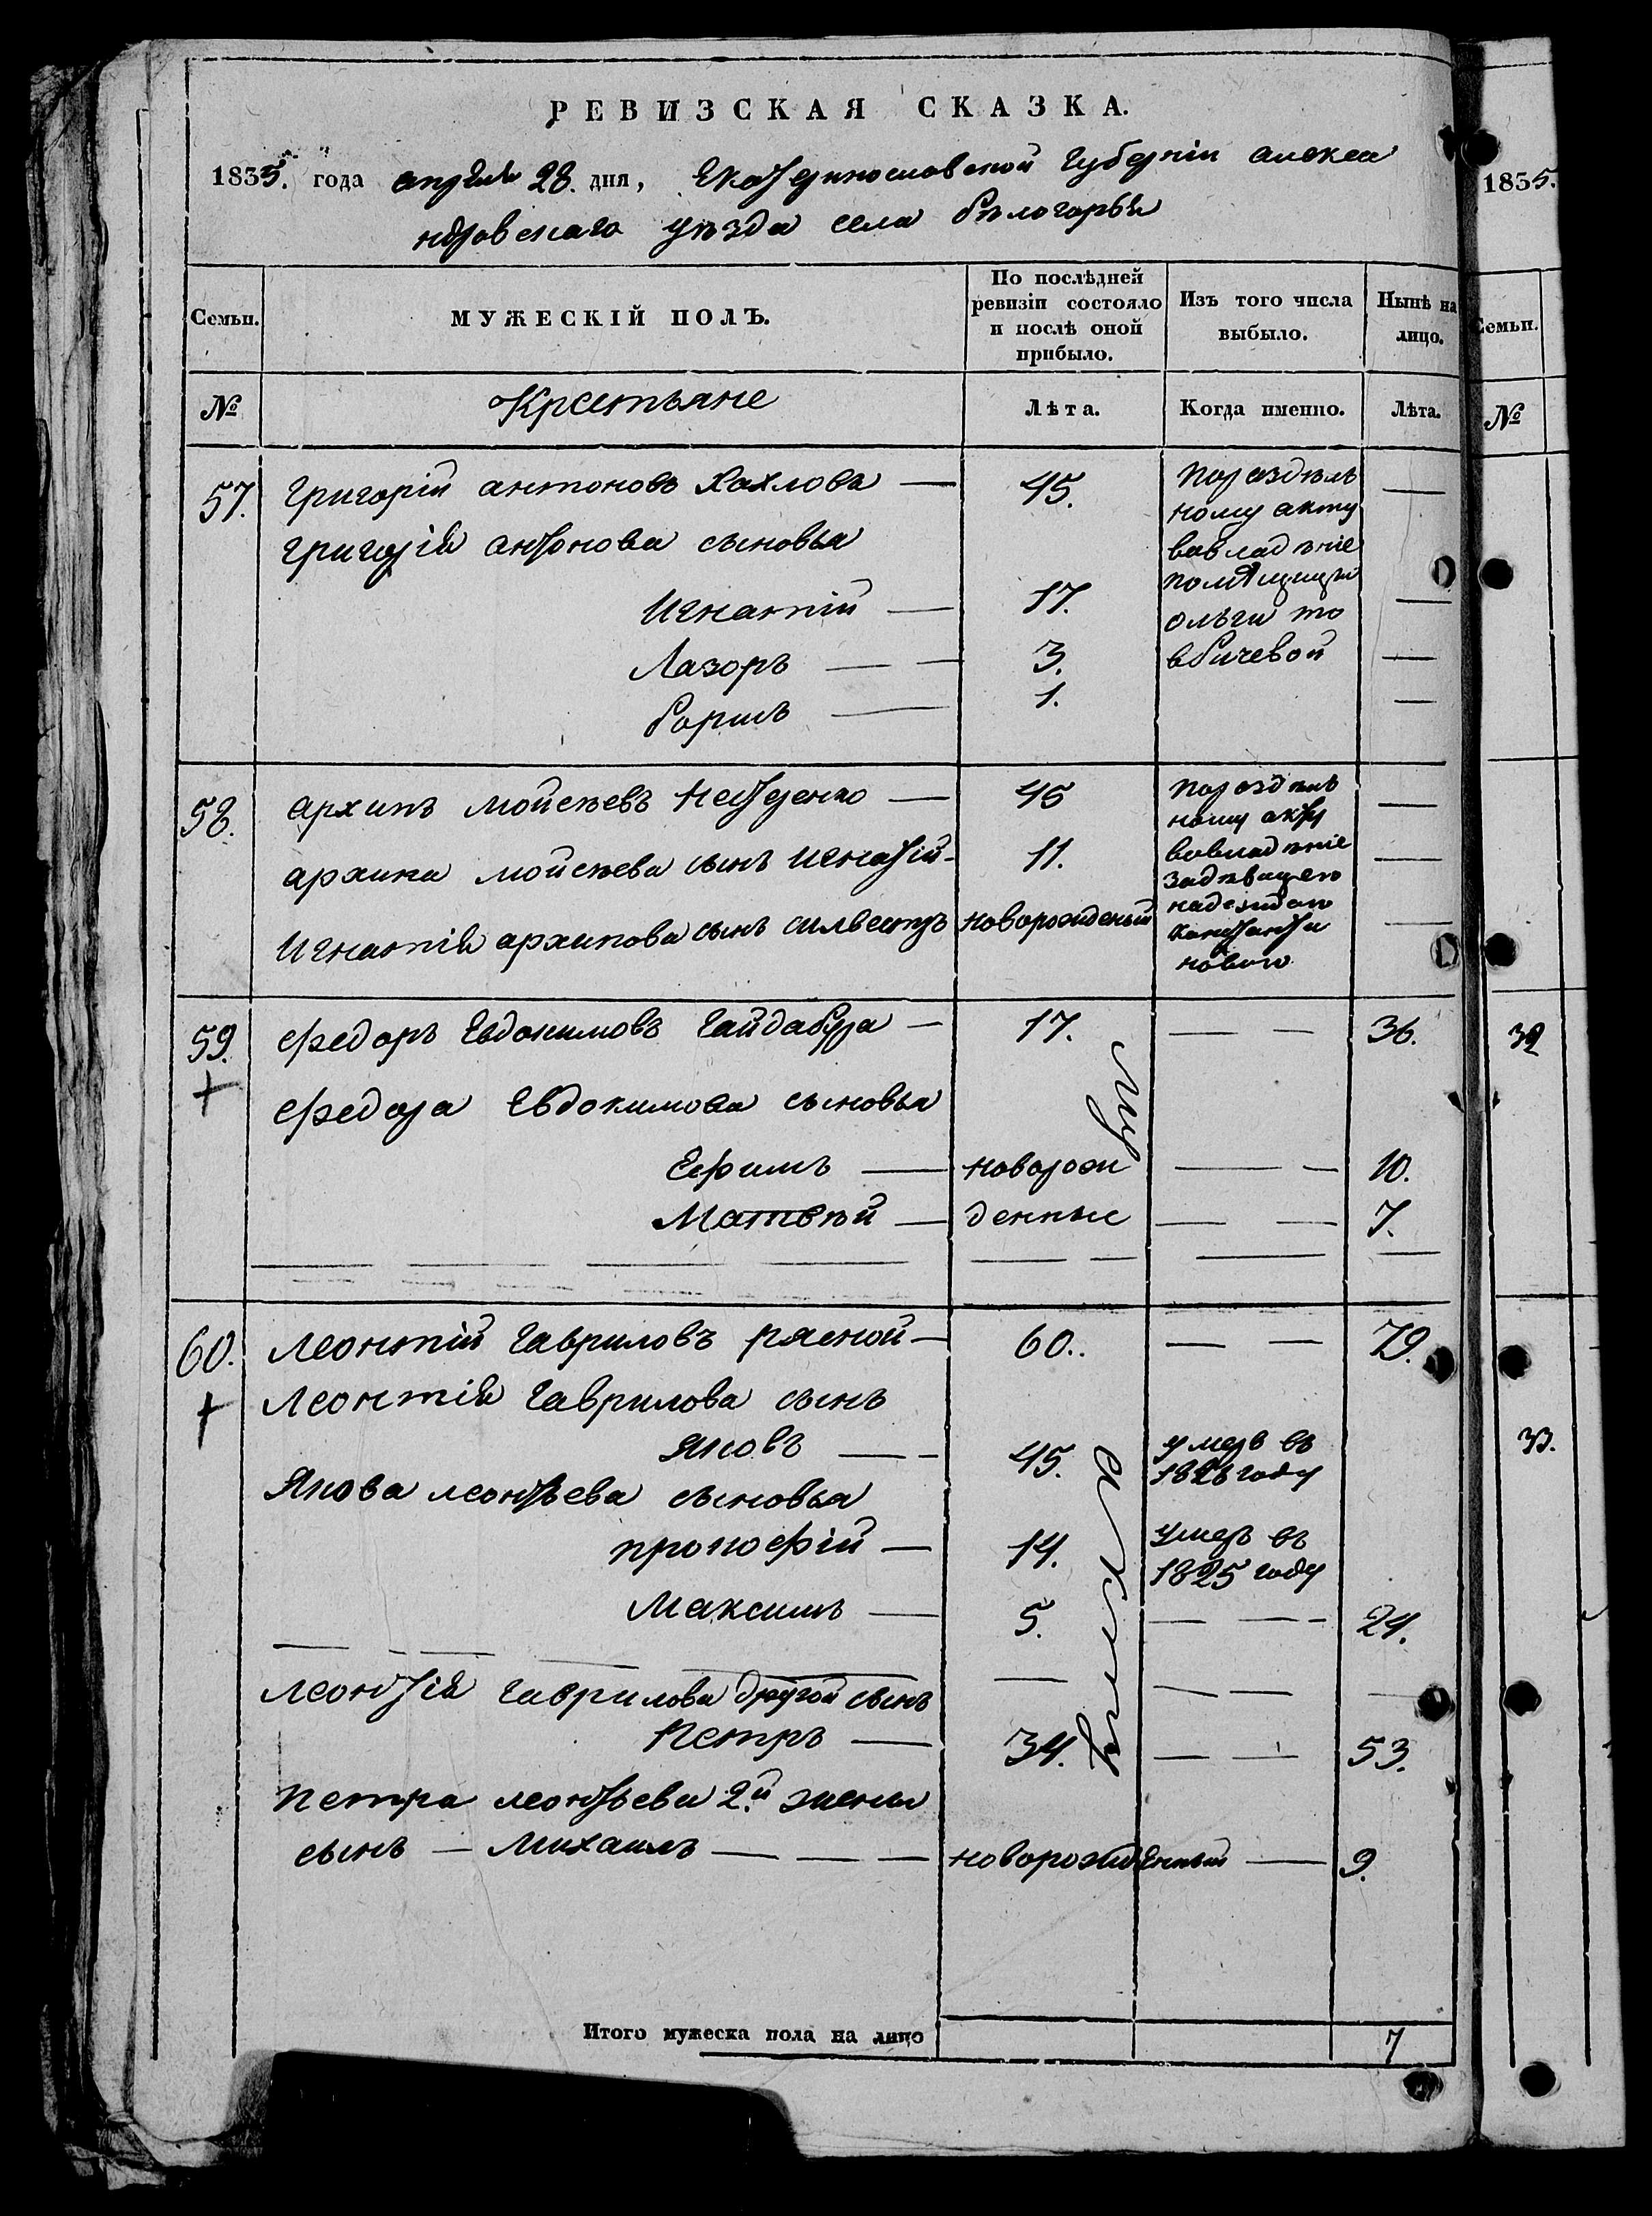 РЕВИЗСКАЯ СКАЗКА.
1835. года апреля 28. дня, Екатеринославской Губерніи алекса
ндровскаго уѣзда села бѣлогорья
1835.
Семьи.
МУЖЕСКІЙ ПОЛЪ.
По послѣдней
ревизіи состояло
и послѣ оной
прибыло.
Изъ того числа
выбыло.
Нынѣ на
лицо.
Семьи.
№ Крестьяне Лѣта. Когда именно. Лѣта. №
57. григорій антоновъ Хахловъ — 45. пораздѣль —
ному акту
григорія антонова сыновья вовладѣніе
помѣщицы
Игнатій — 17. ольги то —
Лазоръ — — 3. вбичевой —
борисъ — 1. —
58. архипъ мойсѣевъ Нестеренко — 45 поразделъ —
ному акту
архипа мойсѣева сынъ игнатій — 11. вовладѣніе —
надеждою
Игнатія архипова сынъ силвестръ новорожденый —
константи
новою
59. федоръ Евдокимовъ Гайдабура — 17. — — 36. 32
федора Евдокимова сыновья
Ефимъ — новорож — — 10.
Матвѣй — денные — — 7.
60. леонтій Гавриловъ рясной — 60.. — — 79.
леонтія Гаврилова сынъ
яковъ — — 45. умеръ въ 33.
1826 году
Якова леонтьева сыновья
прокофій — 14. умеръ въ
1825 году
Максимъ — 5. — — 24.
леонтія гаврилова другой сынъ
Петръ — 34. — — 53.
Петра леонтьева 2.й жены
сынъ — Михаилъ — — — новорожденный — 9.
Итого мужеска пола на лицо 7